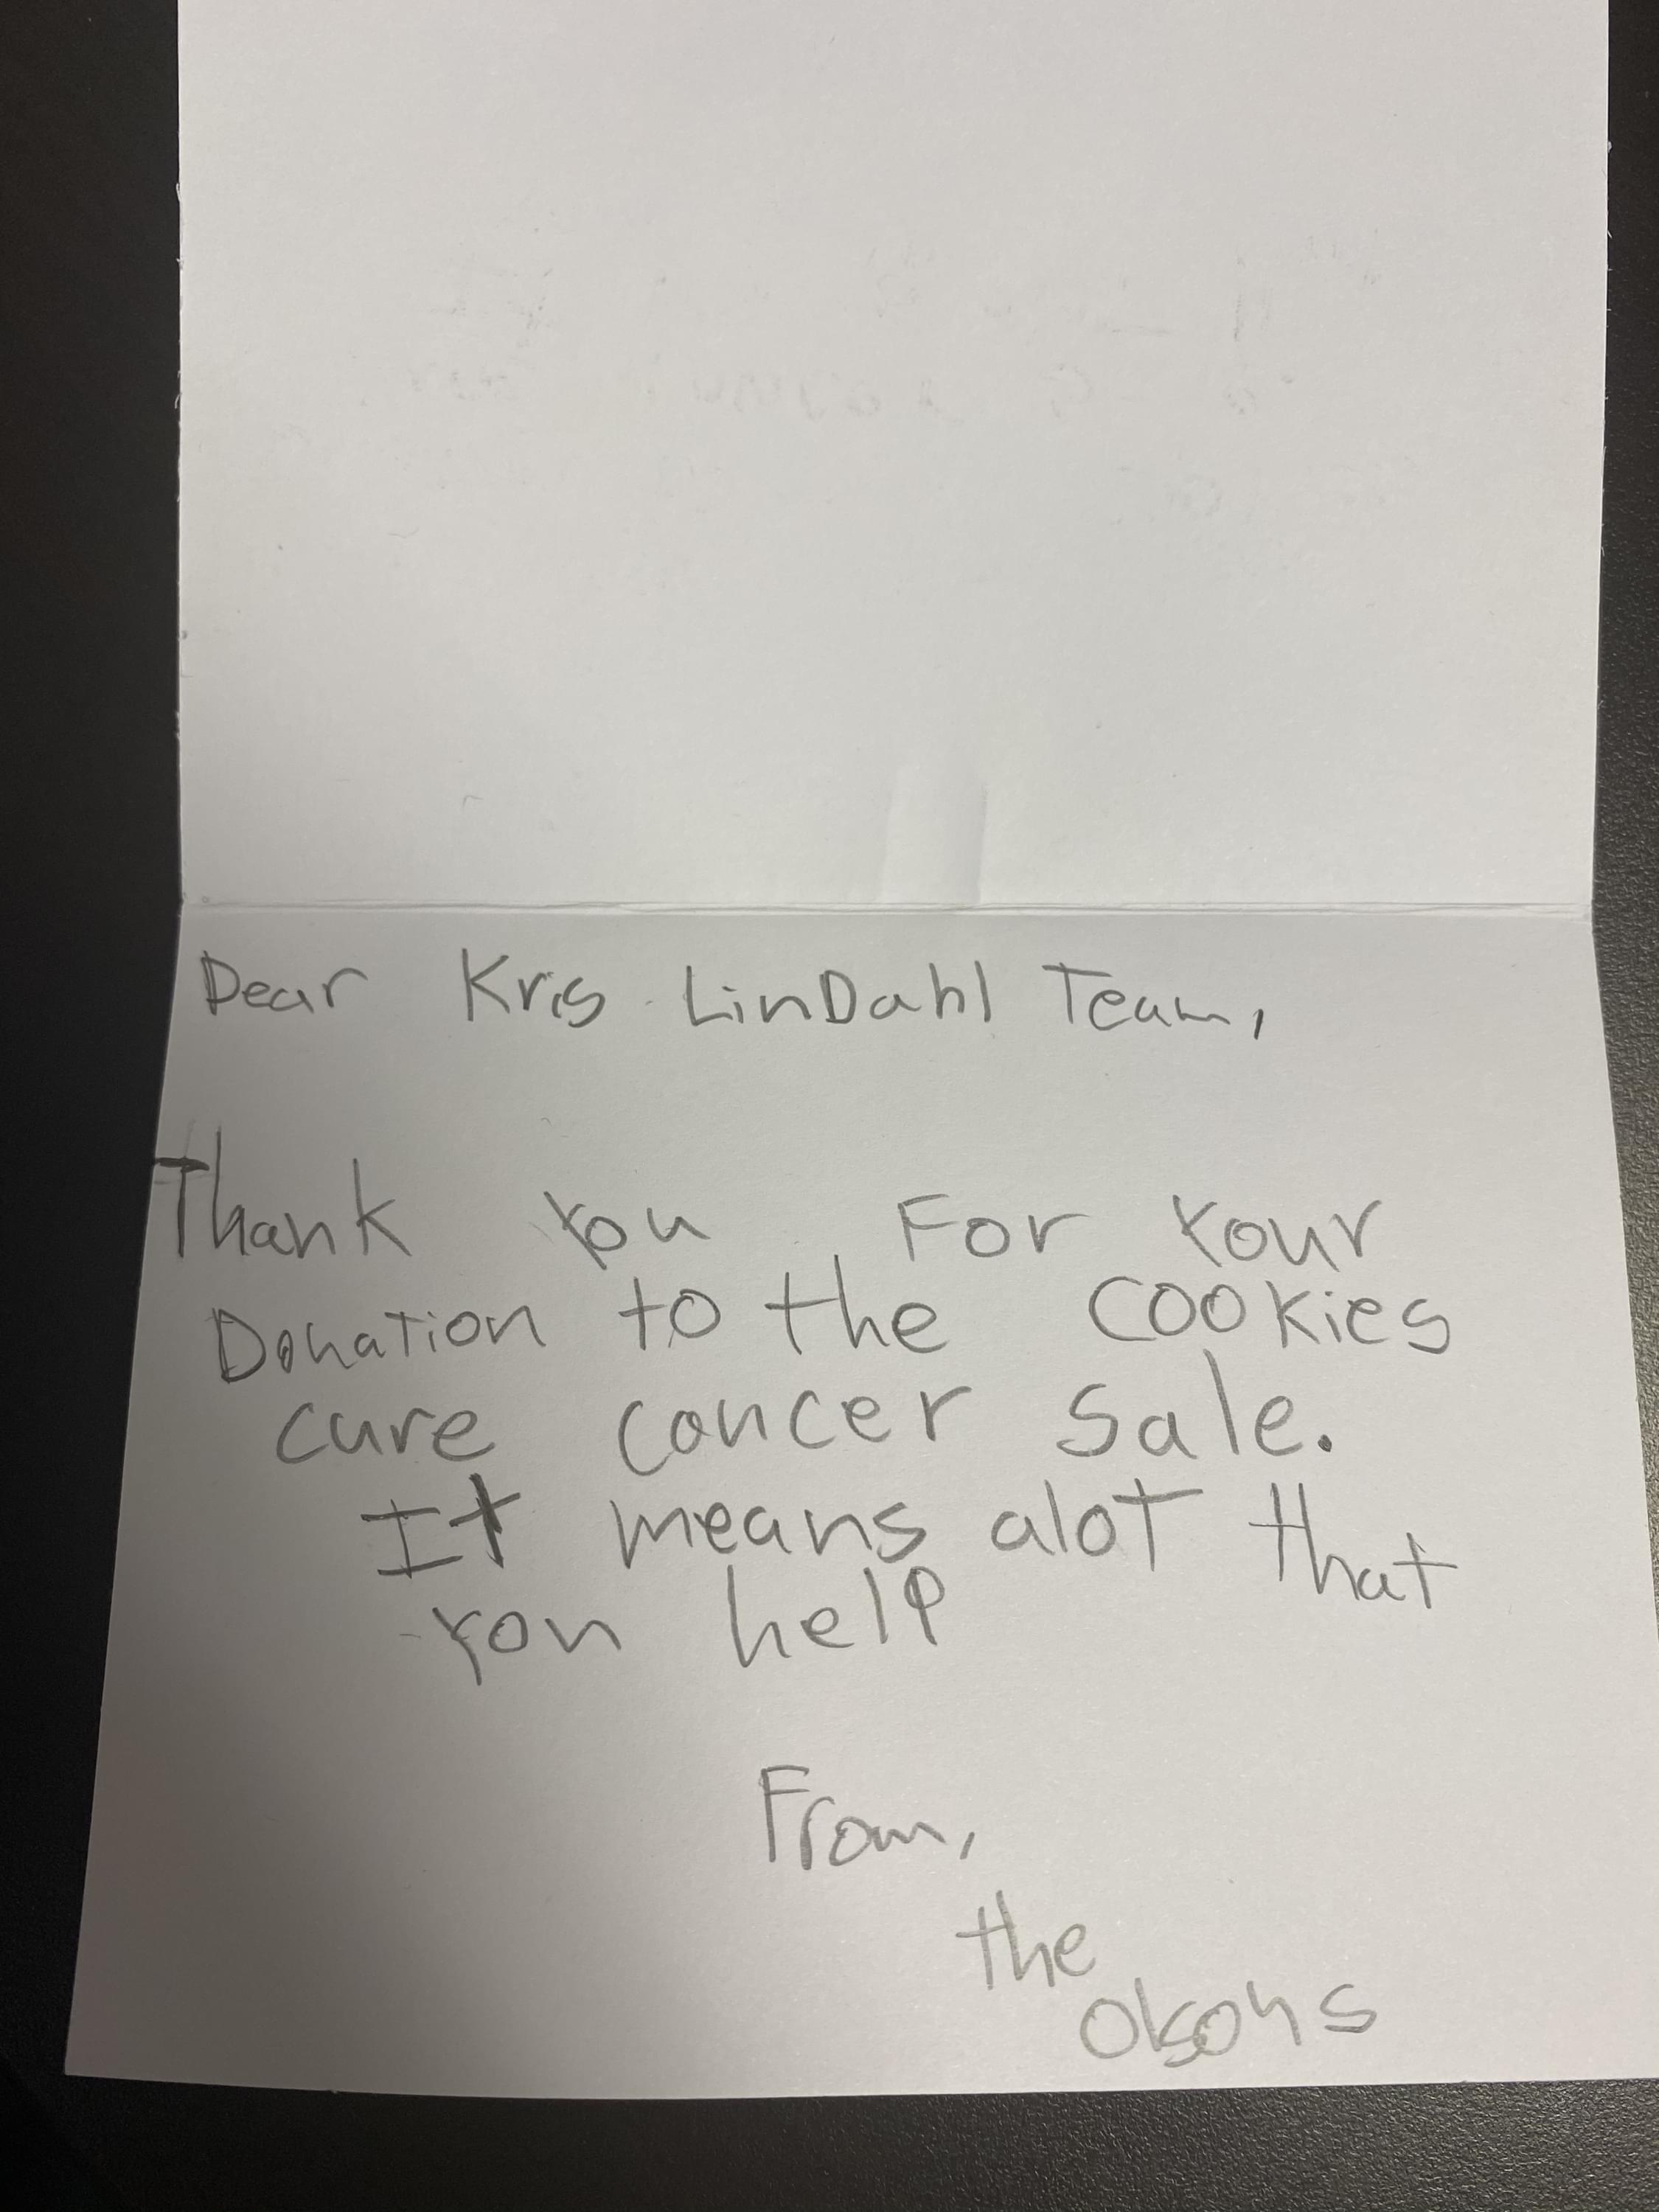 Dear Kris LinDahl Team,
Thank you For your
Donation to the cookies
cure cancer sale.
It means alot that
you help
From,
the
olsons